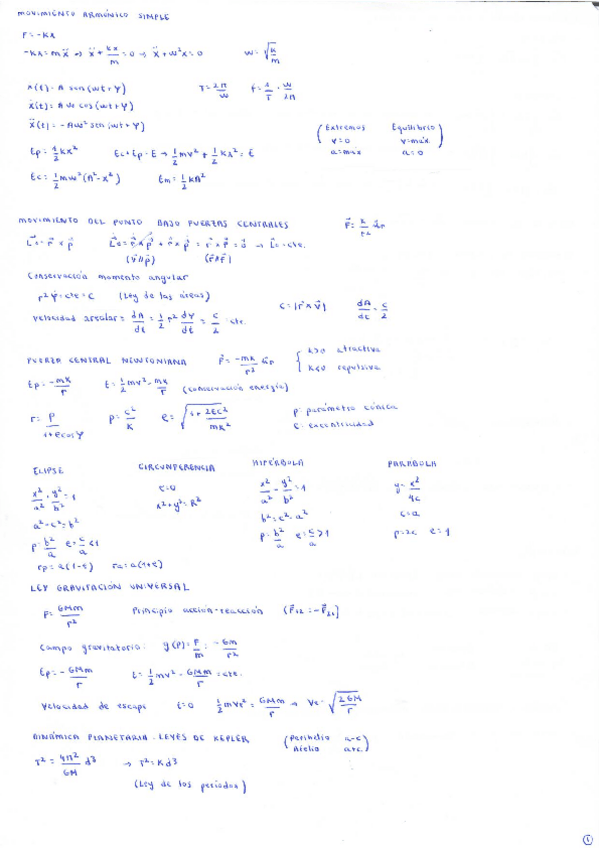 MOVIMIENTO ARMÓNICO SIMPLE
F = -kx
-kx = mẍ → ẍ + kx/m = 0 → ẍ + w²x = 0    w = √(k/m)
x(t) = A sen(wt + φ)    T = 2π/w    f = 1/T = w/2π
ẋ(t) = Aw cos(wt + φ)
ẍ(t) = -Aw² sen(wt + φ)    (Extremos    Equilibrio)
v=0    v=máx.
a=máx    a=0
Ep = 1/2 kx²    Ec + Ep = E → 1/2 mv² + 1/2 kx² = E
Ec = 1/2 mw²(A² - x²)    Em = 1/2 kA²
MOVIMIENTO DEL PUNTO BAJO FUERZAS CENTRALES
Conservación momento angular
r²φ̇ = cte = C    (Ley de las áreas)    C = |r⃗ x v⃗|    dA/dt = C/2
Velocidad areolar = dA/dt = 1/2 r² dφ/dt = C/2 cte.
FUERZA CENTRAL NEWTONIANA    k>0 atractiva
k<0 repulsiva
Ep = -mk/r    E = 1/2 mv² - mk/r (conservación energía)
r = p/(1+e cos φ)    p = c²/k    e = √(1 + 2Ec²/mk²)    p: parámetro cónica
e: excentricidad
ELIPSE    CIRCUNFERENCIA    HIPÉRBOLA    PARÁBOLA
x²/a² + y²/b² = 1    e=0    x²/a² - y²/b² = 1    y = x²/4c
x² + y² = R²
a² - c² = b²    b² = c² - a²    c = a
p = b²/a    e = c/a < 1    p = b²/a    e = c/a > 1    p = 2c    e = 1
rp = a(1-e)    ra = a(1+e)
LEY GRAVITACIÓN UNIVERSAL
F = GMm/r²    Principio acción-reacción    (F⃗12 = -F⃗21)
Campo gravitatorio: g(P) = F/m = -GM/r²
Ep = -GMm/r    E = 1/2 mv² - GMm/r = cte.
Velocidad de escape    E=0    1/2 mve² = GMm/r → ve = √(2GM/r)
DINÁMICA PLANETARIA. LEYES DE KEPLER    (Perihelio    a-c
Afelio    a+c)
T² = 4π²/GM d³    → T² = Kd³
(Ley de los periodos)
1